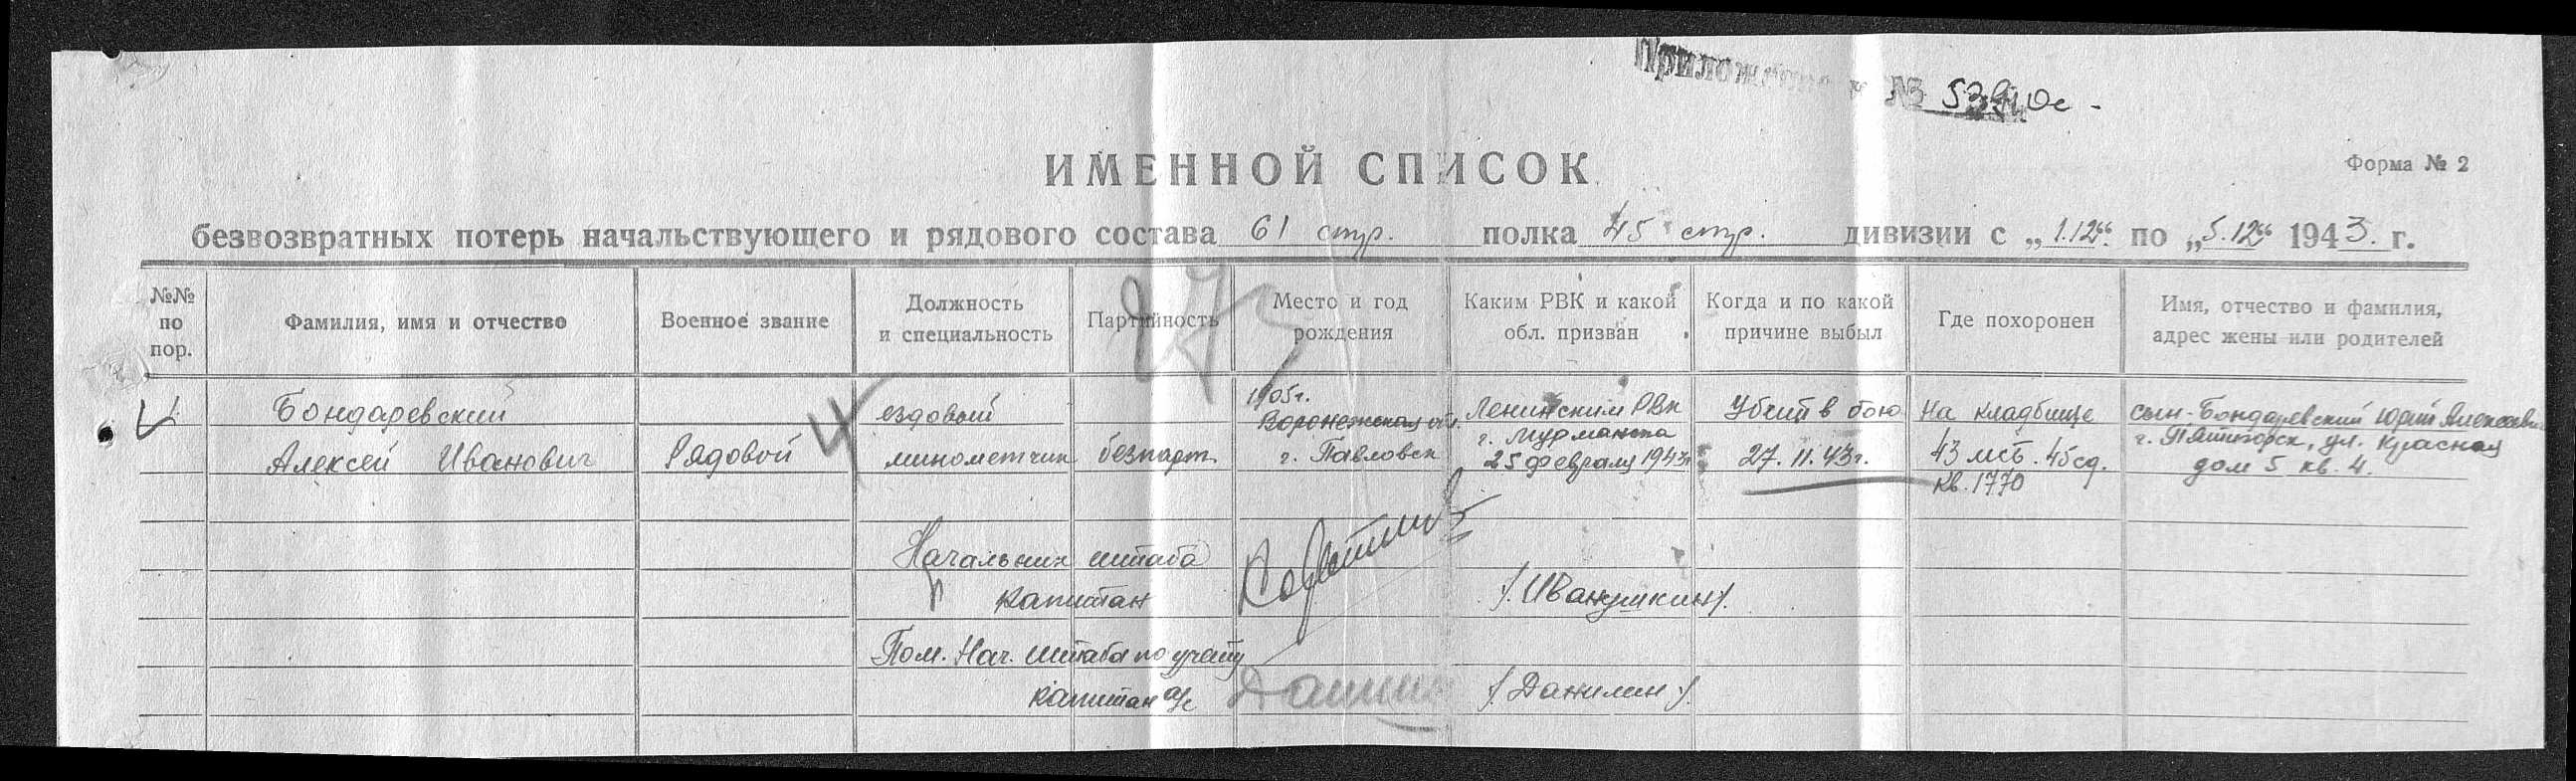 Приложение к № 5390с
ИМЕННОЙ СПИСОК
Форма № 2
безвозвратных потерь начальствующего и рядового состава 61 стр. полка 45 стр. дивизии с „1.12“ по „5.12“ 1943. г.
№№ по пор.
Фамилия, имя и отчество
Военное звание
Должность и специальность
Партийность
Место и год рождения
Каким РВК и какой обл. призван
Когда и по какой причине выбыл
Где похоронен
Имя, отчество и фамилия, адрес жены или родителей
1.
Бондаревский
Алексей Иванович
Рядовой
ездовый
минометчик
безпарт.
1905г.
Воронежская обл.
г. Павловск
Ленинским РВК
г. Мурманска
25 февраля 1943г
Убит в бою
27.11.43г.
На кладбище
43 мсб. 45сд.
кв. 1770
сын-Бондаревский Юрий Алексеевич
г. Пятигорск, ул. Красная
дом 5 кв. 4.
Начальник штаба
капитан /Иванушкин/.
Пом. Нач. штаба по учету
капитан а/с Данилин /Данилин/.